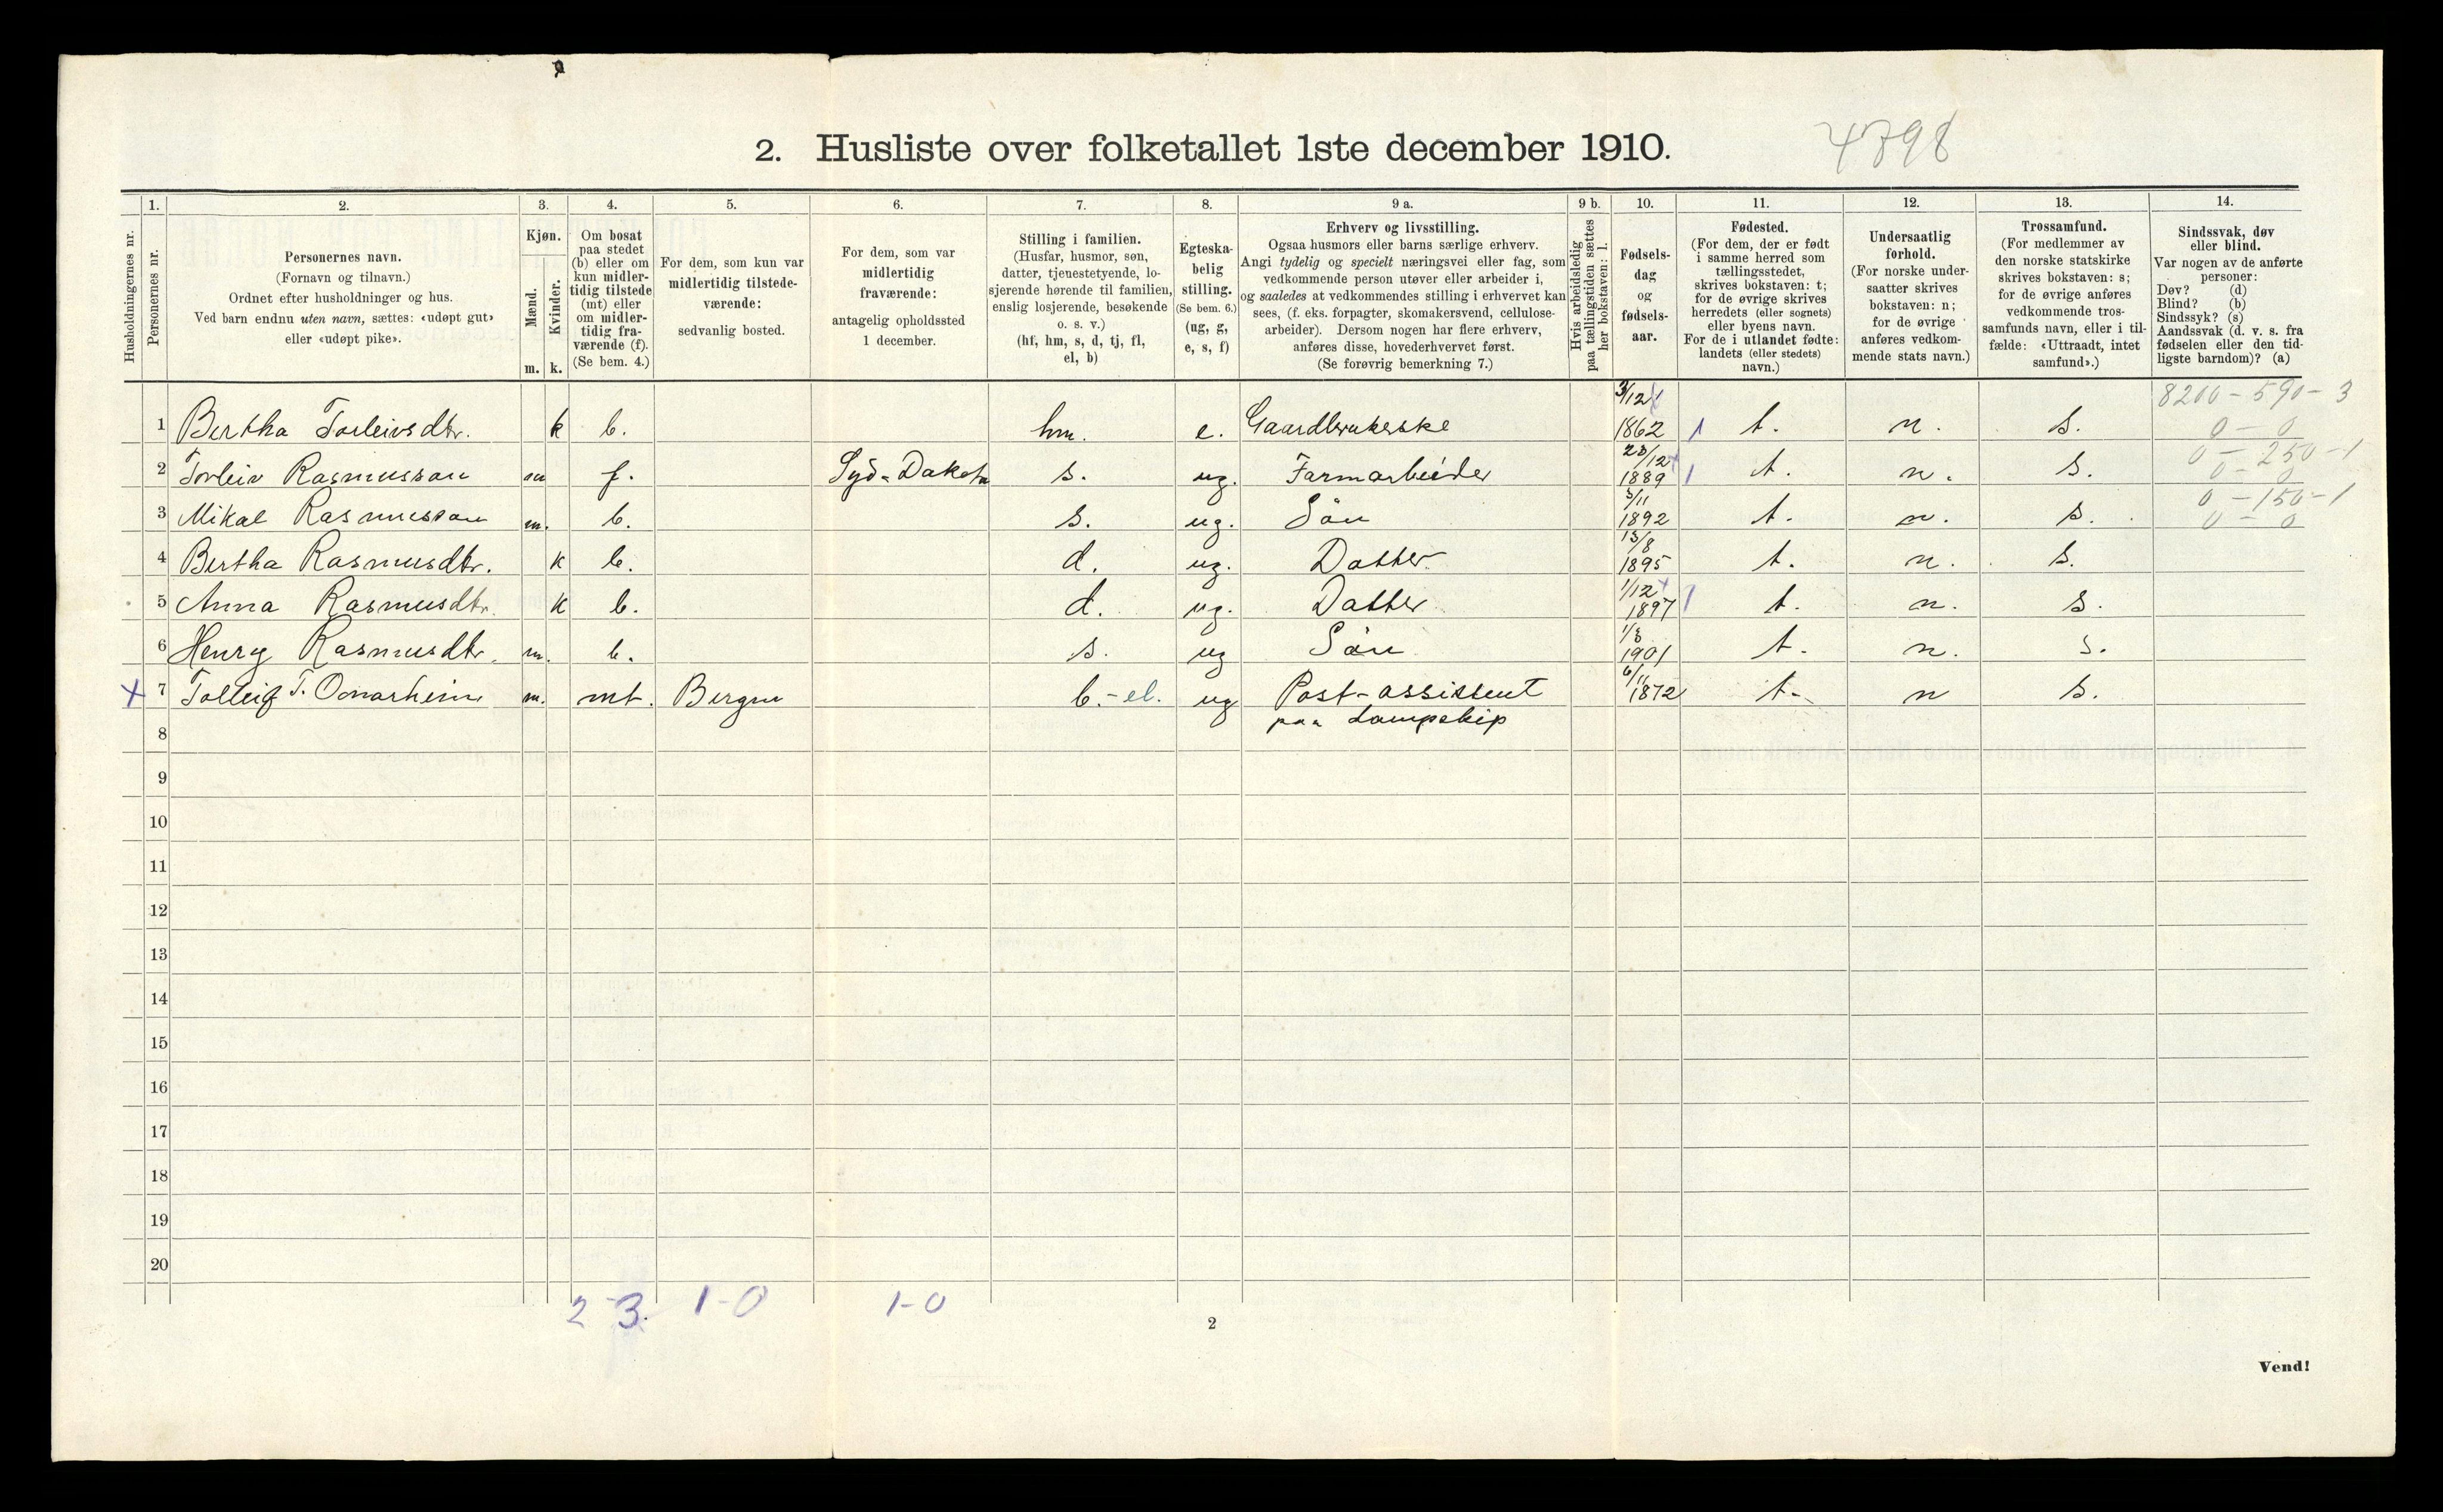 2. Husliste over folketallet 1ste december 1910.
4798
Husholdningernes nr.
1.
Personernes nr.
2.
Personernes navn.
(Fornavn og tilnavn.)
Ordnet efter husholdninger og hus.
Ved barn endnu uten navn, sættes: «udøpt gut»
eller «udøpt pike».
3.
Kjøn.
Mænd.
Kvinder.
m. k.
4.
Om bosat
paa stedet
(b) eller om
kun midler-
tidig tilstede
(mt) eller
om midler-
tidig fra-
værende (f).
(Se bem. 4.)
5.
For dem, som kun var
midlertidig tilstede-
værende:
sedvanlig bosted.
6.
For dem, som var
midlertidig
fraværende:
antagelig opholdssted
1 december.
7.
Stilling i familien.
(Husfar, husmor, søn,
datter, tjenestetyende, lo-
sjerende hørende til familien,
enslig losjerende, besøkende
o. s. v.)
(hf, hm, s, d, tj, fl,
el, b)
8.
Egteska-
belig
stilling.
(Se bem. 6.)
(ug, g,
e, s, f)
9 a.
Erhverv og livsstilling.
Ogsaa husmors eller barns særlige erhverv.
Angi tydelig og specielt næringsvei eller fag, som
vedkommende person utøver eller arbeider i,
og saaledes at vedkommendes stilling i erhvervet kan
sees, (f. eks. forpagter, skomakersvend, cellulose-
arbeider). Dersom nogen har flere erhverv,
anføres disse, hovederhvervet først.
(Se forøvrig bemerkning 7.)
9 b.
Hvis arbeidsledig
paa tællingstiden sættes
her bokstaven: l.
10.
Fødsels-
dag
og
fødsels-
aar.
11.
Fødested.
(For dem, der er født
i samme herred som
tællingsstedet,
skrives bokstaven: t;
for de øvrige skrives
herredets (eller sognets)
eller byens navn.
For de i utlandet fødte:
landets (eller stedets)
navn.)
12.
Undersaatlig
forhold.
(For norske under-
saatter skrives
bokstaven: n;
for de øvrige
anføres vedkom-
mende stats navn.)
13.
Trossamfund.
(For medlemmer av
den norske statskirke
skrives bokstaven: s;
for de øvrige anføres
vedkommende tros-
samfunds navn, eller i til-
fælde: «Uttraadt, intet
samfund».)
14.
Sindssvak, døv
eller blind.
Var nogen av de anførte
personer:
Døv? (d)
Blind? (b)
Sindssyk? (s)
Aandssvak (d. v. s. fra
fødselen eller den tid-
ligste barndom)? (a)
1 Bertha Torleivsdtr. k b. hm. e. Gaardbrukerske 3/12 1862 1 t. n. s. 8200 - 590 - 3
0 - 0
2 Torleiv Rasmussan m f. Syd-Dakota s. ug. Farmarbeider 23/12 1889 1 t. n. s. 0 - 250 - 1
0 - 0
3 Mikal Rasmussan m. b. s. ug. Sön 3/11 1892 t. n. s. 0 - 150 - 1
0 - 0
4 Bertha Rasmusdtr. k b. d. ug. Datter 13/8 1895 t. n. s.
5 Anna Rasmusdtr. k b. d. ug. Datter 1/12 1897 1 t. n. s.
6 Henry Rasmusdtr. m. b. s. ug Sön 1/3 1901 t. n. s.
x 7 Tolleif T. Omarheim m. mt. Bergen b. - el. ug Post-assistent 6/11 1872 t. n s.
paa Dampskip
8
9
10
11
12
13
14
15
16
17
18
19
20
2-3. 1-0 1-0
2
Vend!